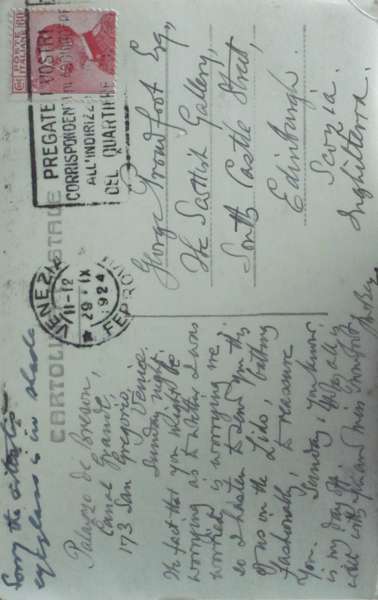 CARTOLINA POSTALE
PREGATE I VOSTRI
CORRISPONDENTI
ALL'INDIRIZZO
DEL QUARTIERE
VENEZIA
11-12
29 · IX
1924
FERROVIA
Sorry the artist's
eyeglass is in shade
Palazzo de Breson,
Canal Grande
173 San Gregorio,
Venice.
Sunday night.
The fact that you might be
worrying as to whether I was
worried is worrying me
so I hasten to send you this
of us on the Lido, bathing
fashionably, to reassure
you. Sunday, you know,
is my day off. Hope all is
well with you and Miss Proudfoot
George Proudfoot Esq.,
The Scottish Gallery,
South Castle Street,
Edinburgh.
Scozia.
Inghilterra.